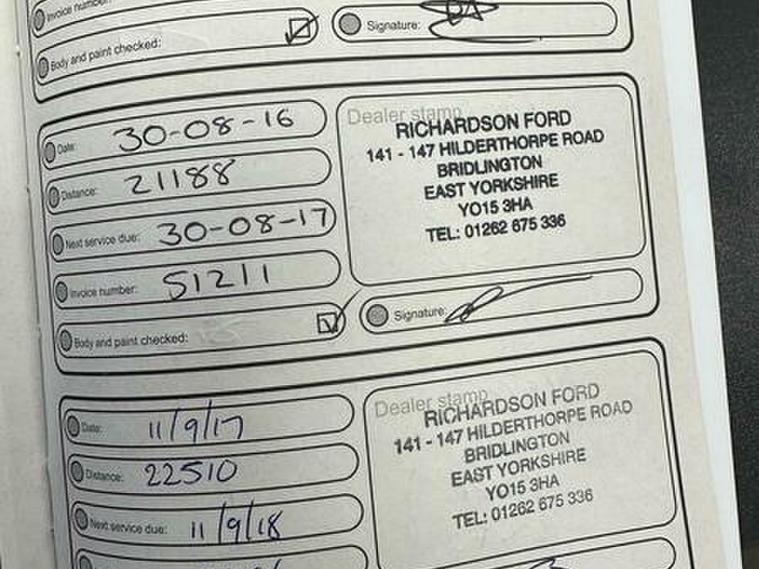 Invoice number:
Body and paint checked:
Signature:
Date: 30-08-16
Distance: 21188
Next service due: 30-08-17
Invoice number: 51211
Body and paint checked:
Dealer stamp
RICHARDSON FORD
141 - 147 HILDERTHORPE ROAD
BRIDLINGTON
EAST YORKSHIRE
YO15 3HA
TEL: 01262 675 336
Signature:
Date: 11/9/17
Distance: 22510
Next service due: 11/9/18
Dealer stamp
RICHARDSON FORD
141 - 147 HILDERTHORPE ROAD
BRIDLINGTON
EAST YORKSHIRE
YO15 3HA
TEL: 01262 675 336